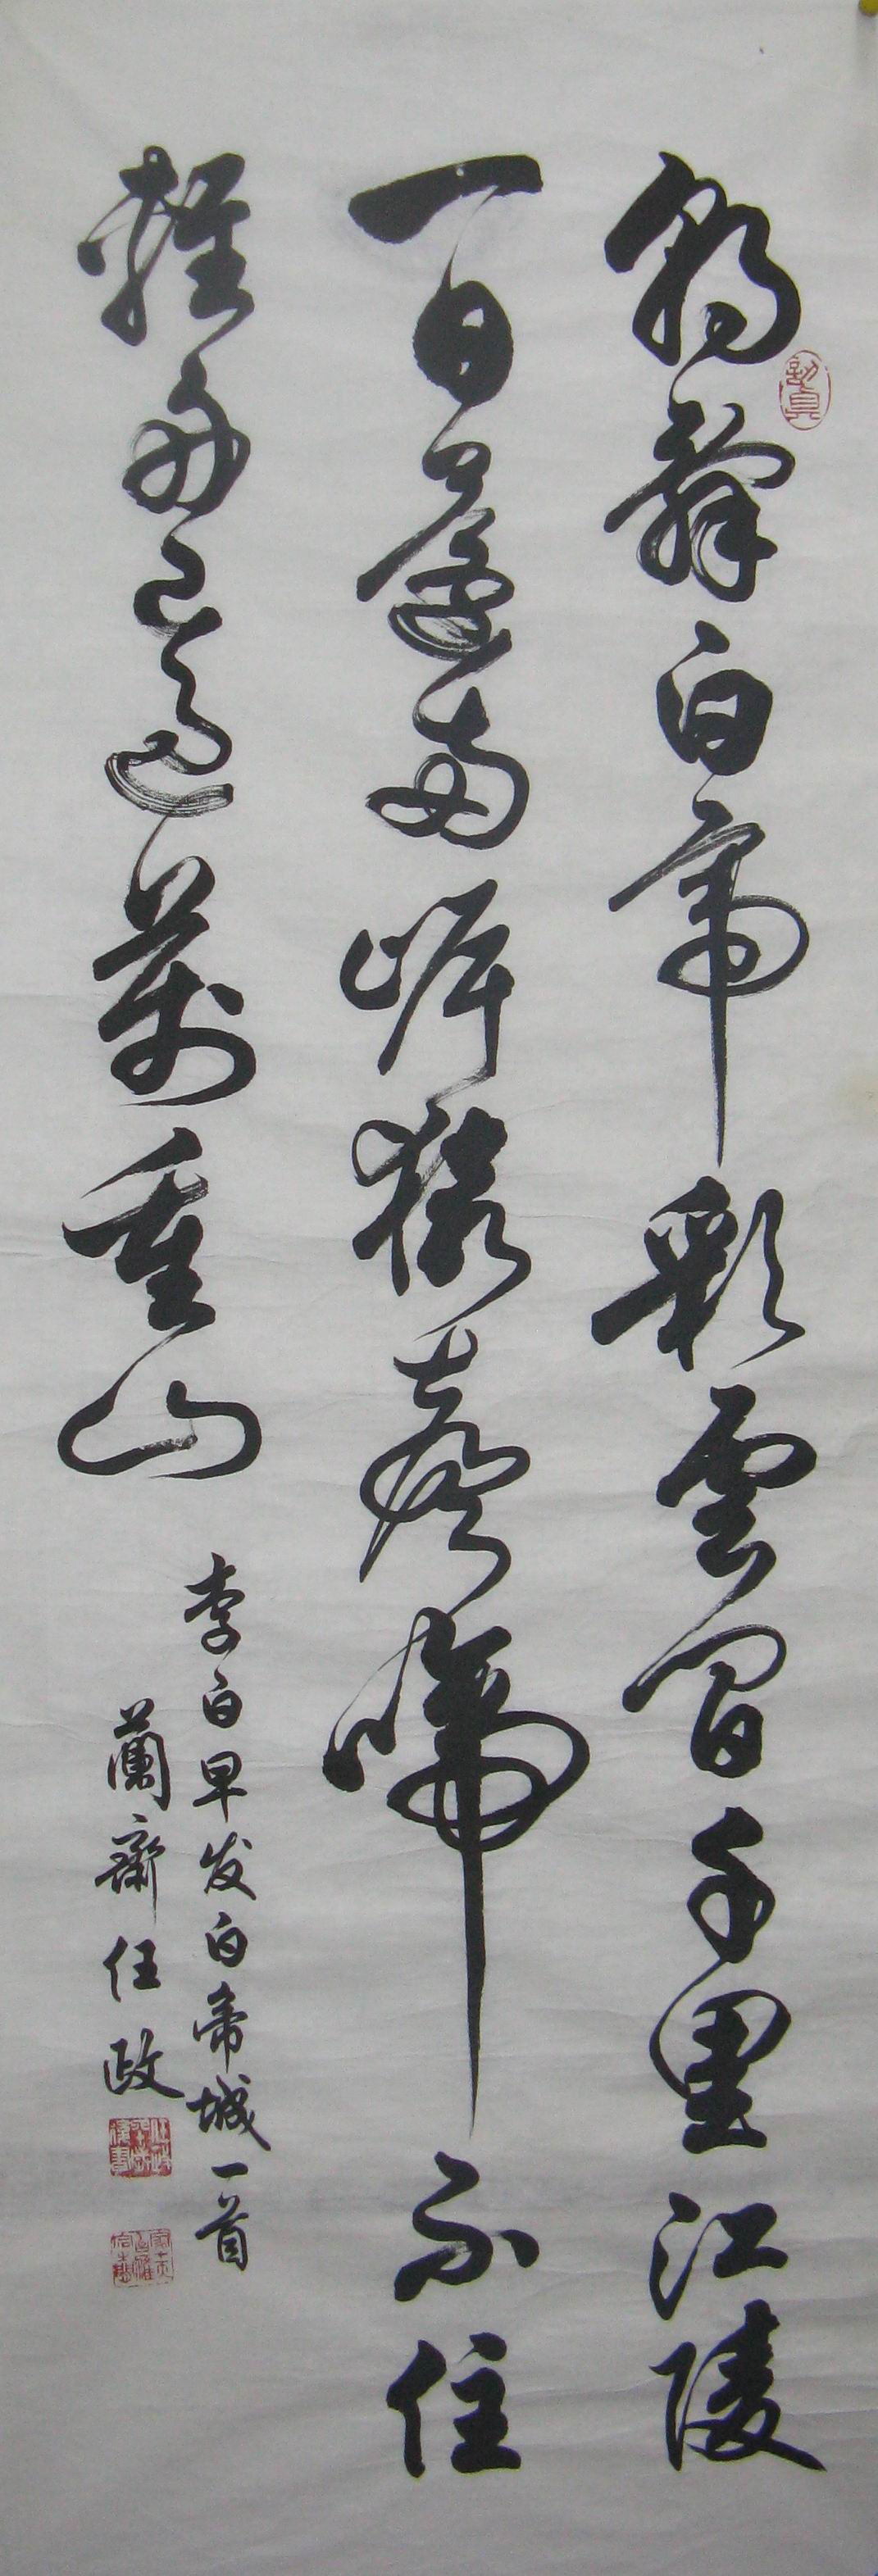 朝辞白帝彩雲間千里江陵
一日還兩岸猿聲啼不住
輕舟已過萬重山
李白早发白帝城一首
蘭齋任政